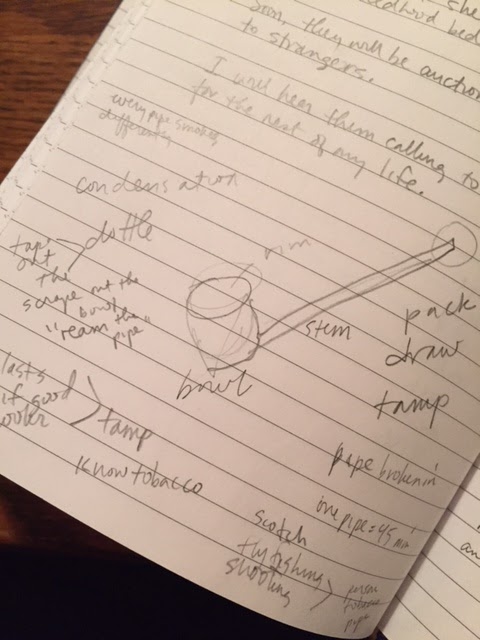 she
bed
soon, they will be auction
to strangers.
I will hear them calling to
for the rest of my life.
every pipe smokes
differently
condensation
dottle
tap
out
the
scrape out the
bowl
"ream the
pipe"
rim
stem
bowl
pack
draw
tamp
lasts
if good
tamp
know tobacco
pipe broken in
one pipe = 45 min
Scotch
fly fishing
shooting
an